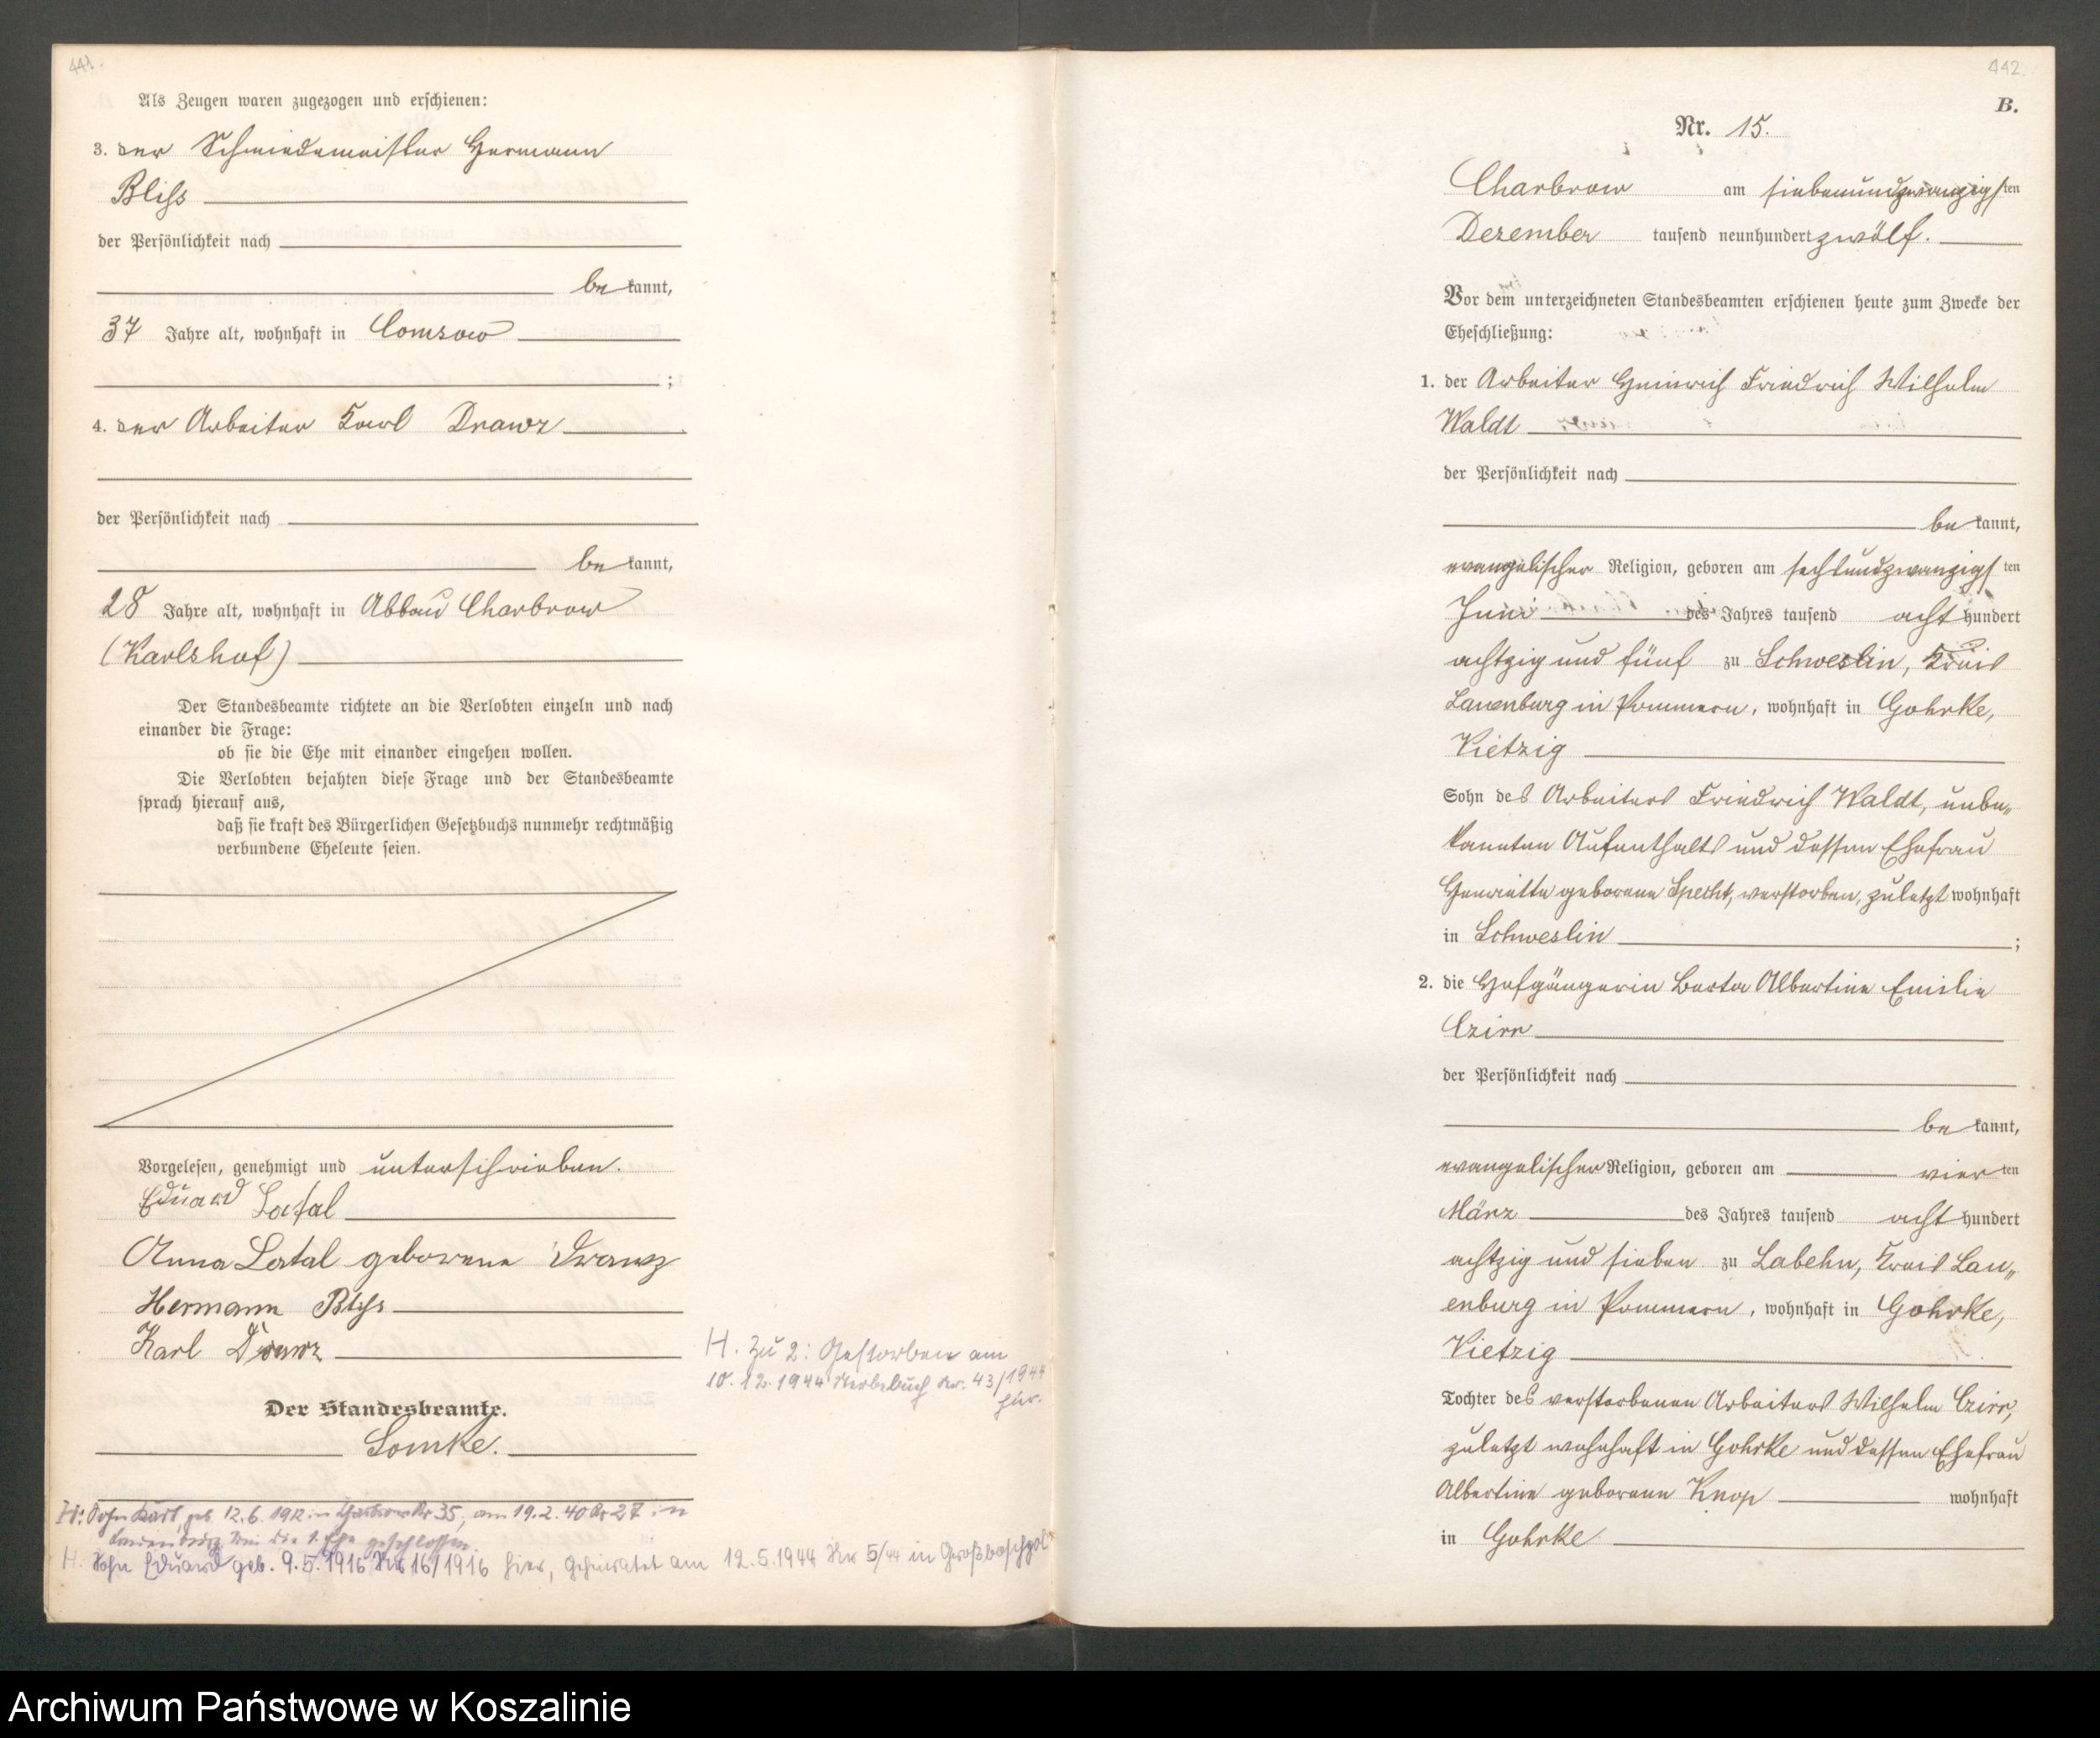 441.
Als Zeugen waren zugezogen und erschienen:
3. der Schmiedemeister Hermann
Bliss
der Persönlichkeit nach
be kannt,
37 Jahre alt, wohnhaft in Comsow
;
4. der Arbeiter Karl Drawz
der Persönlichkeit nach
be kannt,
28 Jahre alt, wohnhaft in Abbau Charbrow
(Karlshof)
Der Standesbeamte richtete an die Verlobten einzeln und nach
einander die Frage:
ob sie die Ehe mit einander eingehen wollen.
Die Verlobten bejahten diese Frage und der Standesbeamte
sprach hierauf aus,
daß sie kraft des Bürgerlichen Gesetzbuchs nunmehr rechtmäßig
verbundene Eheleute seien.
Vorgelesen, genehmigt und unterschrieben.
Eduard Latal
Anna Latal geborene Drawz
Hermann Bliss
Karl Drawz
H. Zu 2: Gestorben am
10.12.1944 Sterbebuch Nr. 43/1944
hier.
Der Standesbeamte.
Lomke.
H: Sohn Karl, geb. 12.6.1912 in Charbrow Nr 35, am 19.2.40 Nr 27 in
Lauenburg Pom die 1. Ehe geschlossen.
H. Sohn Eduard geb. 9.5.1916 Nr 16/1916 hier, geheiratet am 12.5.1944 Nr 5/44 in Großboschpol
442.
B.
Nr. 15.
Charbrow am siebenundzwanzigsten
Dezember tausend neunhundert zwölf.
Vor dem unterzeichneten Standesbeamten erschienen heute zum Zwecke der
Eheschließung:
1. der Arbeiter Heinrich Friedrich Wilhelm
Waldt
der Persönlichkeit nach
be kannt,
evangelischer Religion, geboren am sechsundzwanzigsten
Juni des Jahres tausend acht hundert
achtzig und fünf zu Schweslin, Kreis
Lauenburg in Pommern, wohnhaft in Gohrke,
Vietzig
Sohn des Arbeiters Friedrich Waldt, unbe„
kannten Aufenthalts und dessen Ehefrau
Henriette geborene Specht, verstorben, zuletzt wohnhaft
in Schweslin ;
2. die Hofgängerin Berta Albertine Emilie
Czirr
der Persönlichkeit nach
be kannt,
evangelischer Religion, geboren am vierten
März des Jahres tausend acht hundert
achtzig und sieben zu Labehn, Kreis Lau„
enburg in Pommern, wohnhaft in Gohrke,
Vietzig
Tochter des verstorbenen Arbeiters Wilhelm Czirr,
zuletzt wohnhaft in Gohrke und dessen Ehefrau
Albertine geborene Knop wohnhaft
in Gohrke
Archiwum Państwowe w Koszalinie